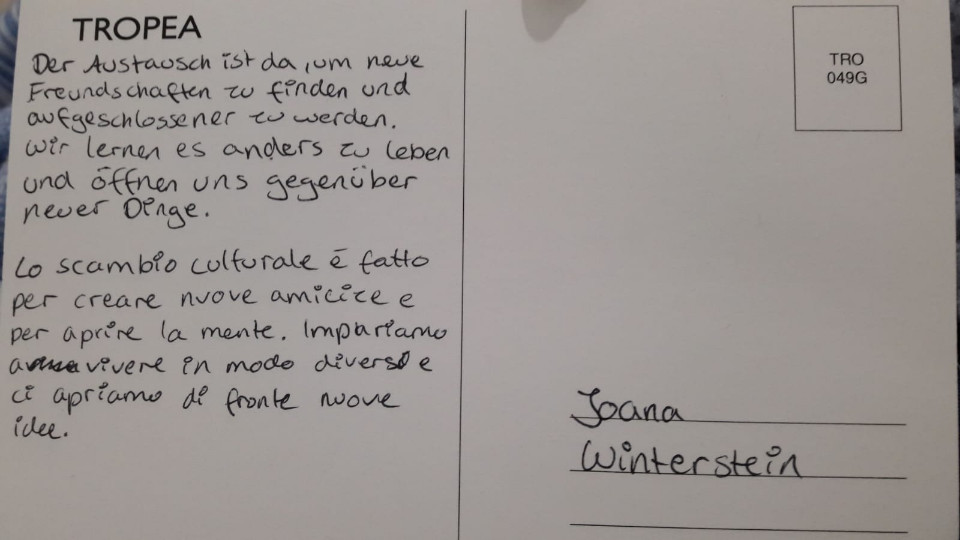 TROPEA
Der Austausch ist da, um neue
Freundschaften zu finden und
aufgeschlossener zu werden.
Wir lernen es anders zu leben
und öffnen uns gegenüber
neuer Dinge.
Lo scambio culturale é fatto
per creare nuove amicize e
per aprire la mente. Impariamo
a vivere in modo diverso e
ci apriamo di fronte nuove
idee.
TRO
049G
Joana
Winterstein